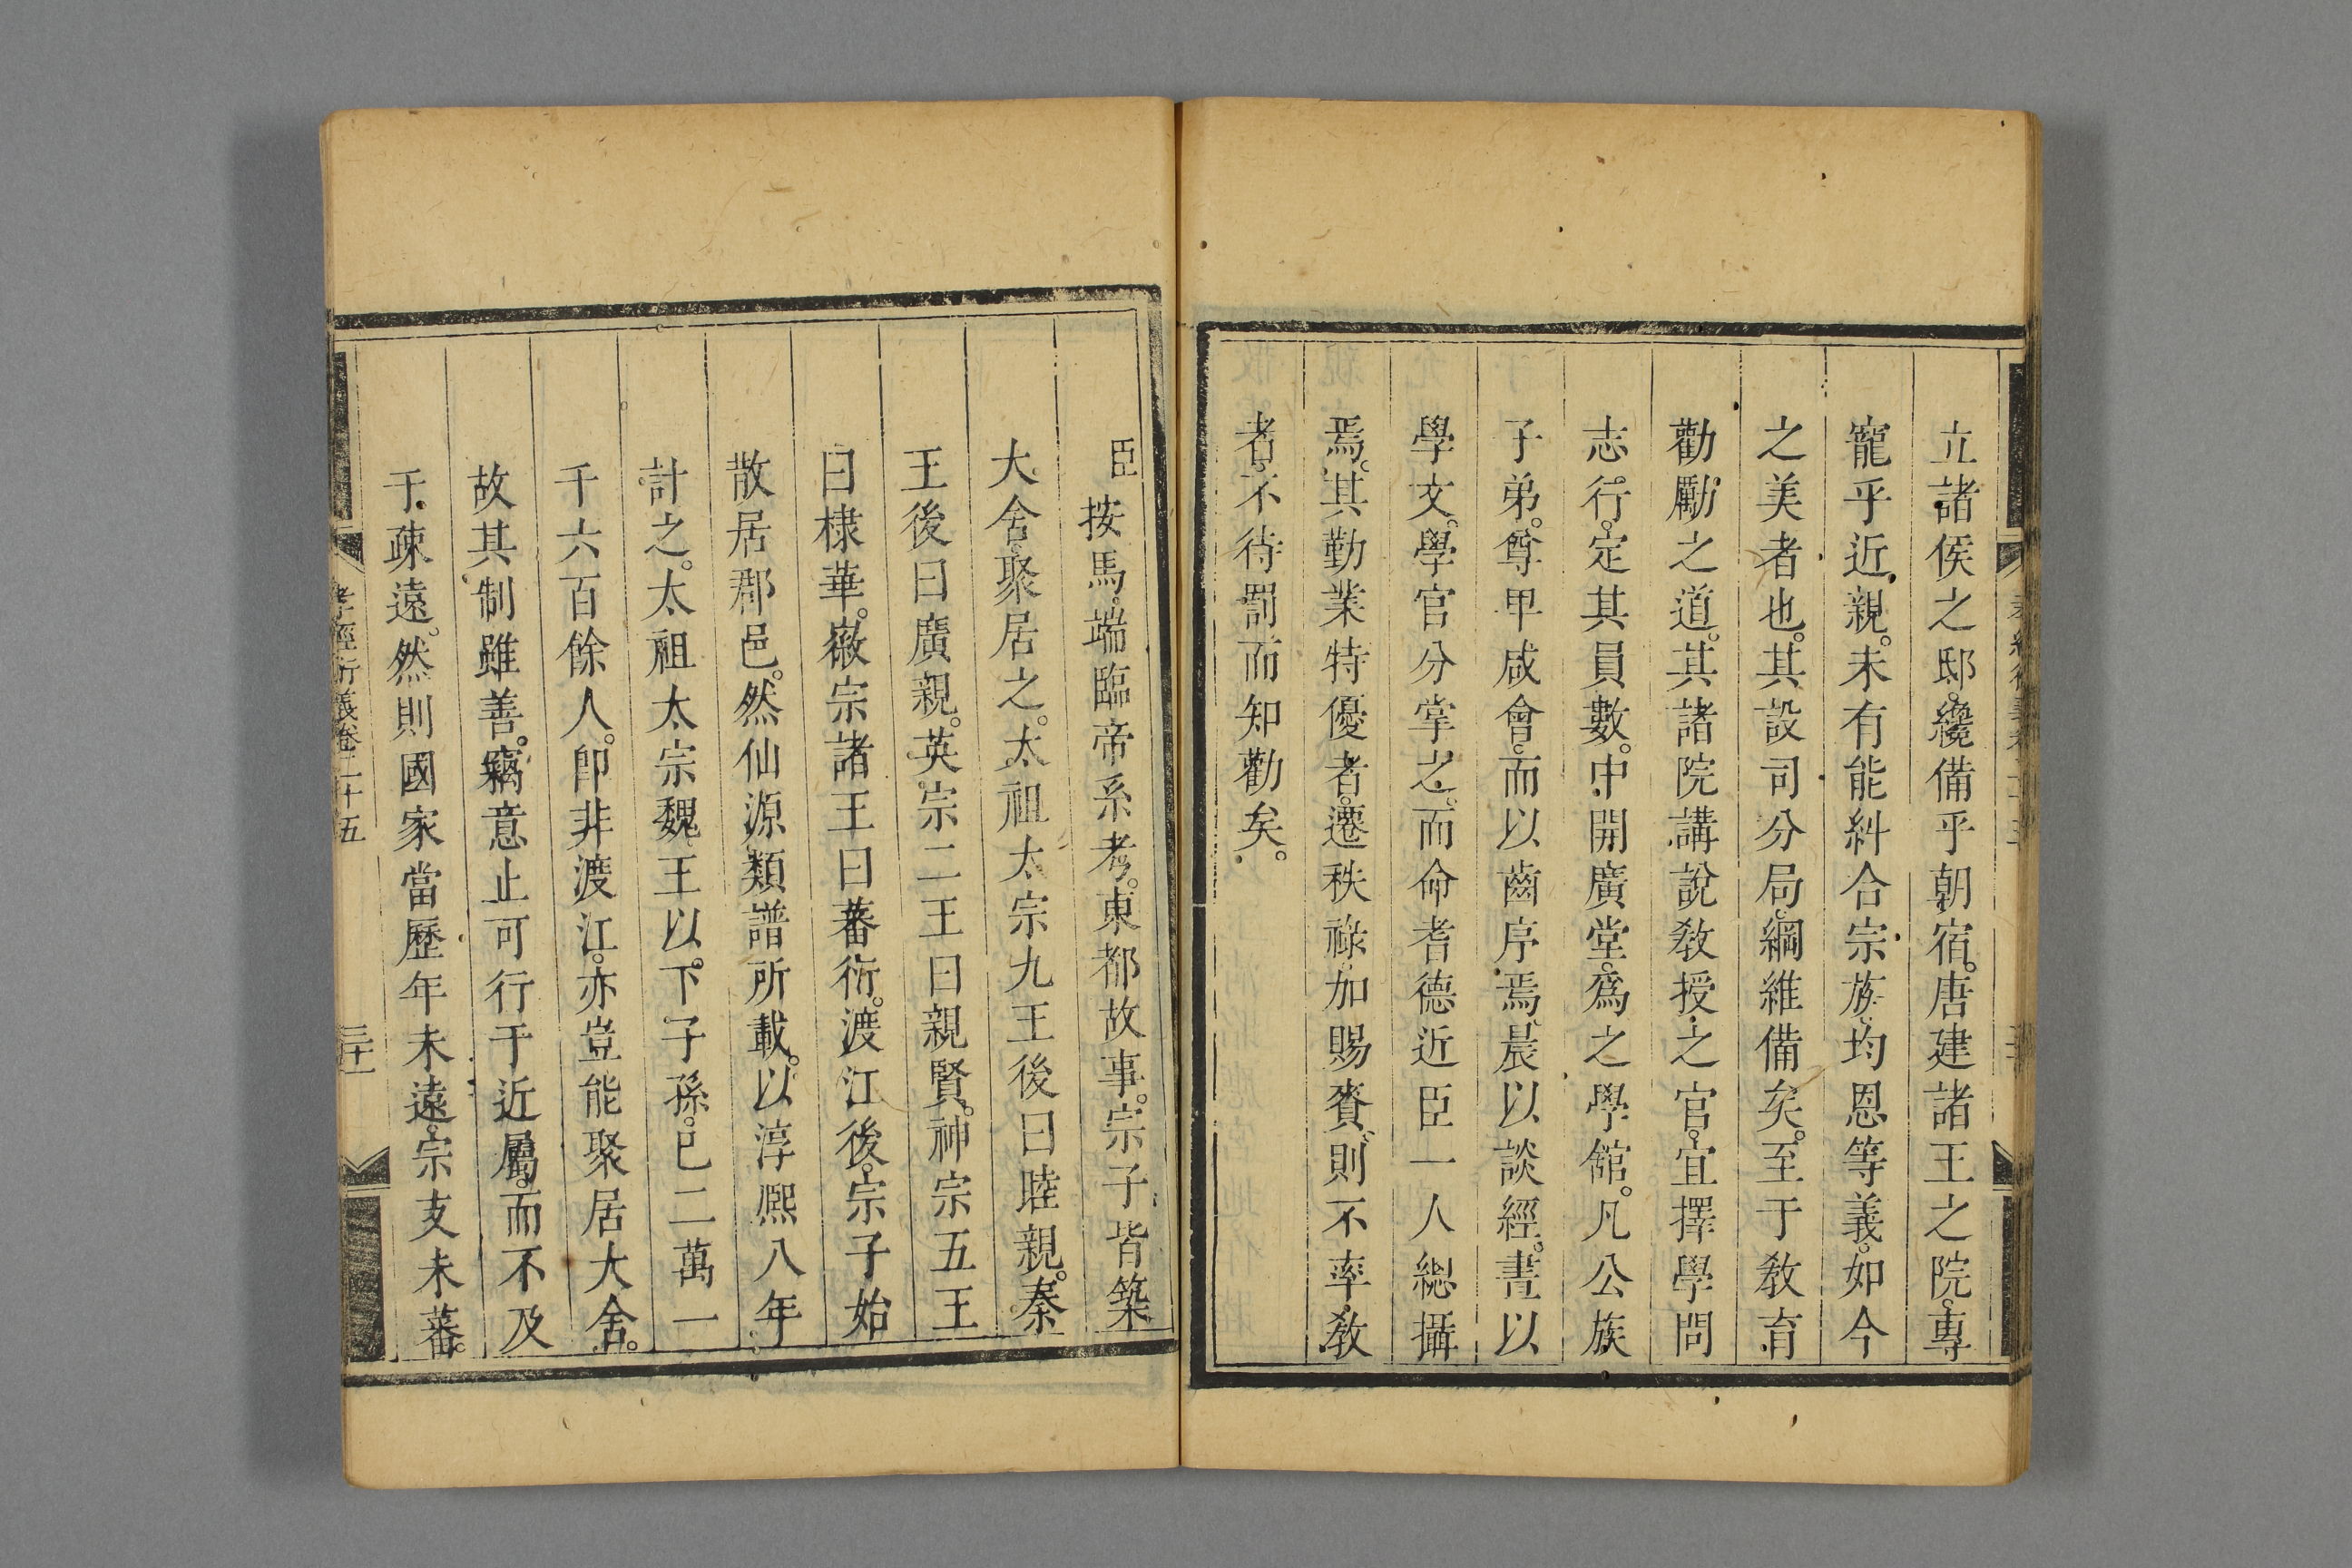 立諸侯之邸。纔備乎朝宿。唐建諸王之院。專
寵乎近親。未有能糾合宗族。均恩等義。如今
之美者也。其設司分局。綱維備矣。至于敎育
勸勵之道。其諸院講說敎授之官。宜擇學問
志行。定其員數。中開廣堂。爲之學舘。凡公族
子弟。尊甲咸會。而以齒序焉。晨以談經。晝以
學文。學官分掌之。而命耆德近臣一人緫攝
焉。其勤業特優者。遷秩祿加賜賚。則不率敎
者。不待罰而知勸矣。
臣按馬端臨帝系考。東都故事。宗子皆築
大舍聚居之。太祖太宗九王後曰睦親。秦
王後曰廣親。英宗二王曰親賢。神宗五王
曰棣華。徽宗諸王曰蕃衍。渡江後。宗子始
散居郡邑。然仙源類譜所載。以淳熈八年
計之。太祖太宗魏王以下子孫。已二萬一
千六百餘人。卽非渡江。亦豈能聚居大舍。
故其制雖善。竊意止可行于近屬。而不及
于疎遠。然則國家當歷年未遠。宗支未蕃。
孝經衍義卷二十五
三十一